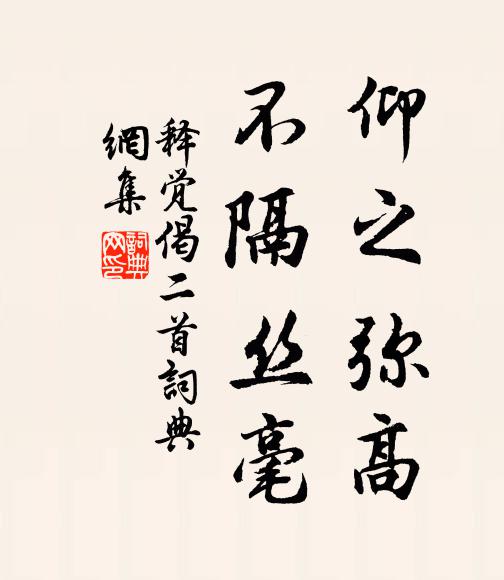 仰之弥高
不隔丝毫
释觉偈二首詞典
網集
詞典
网印